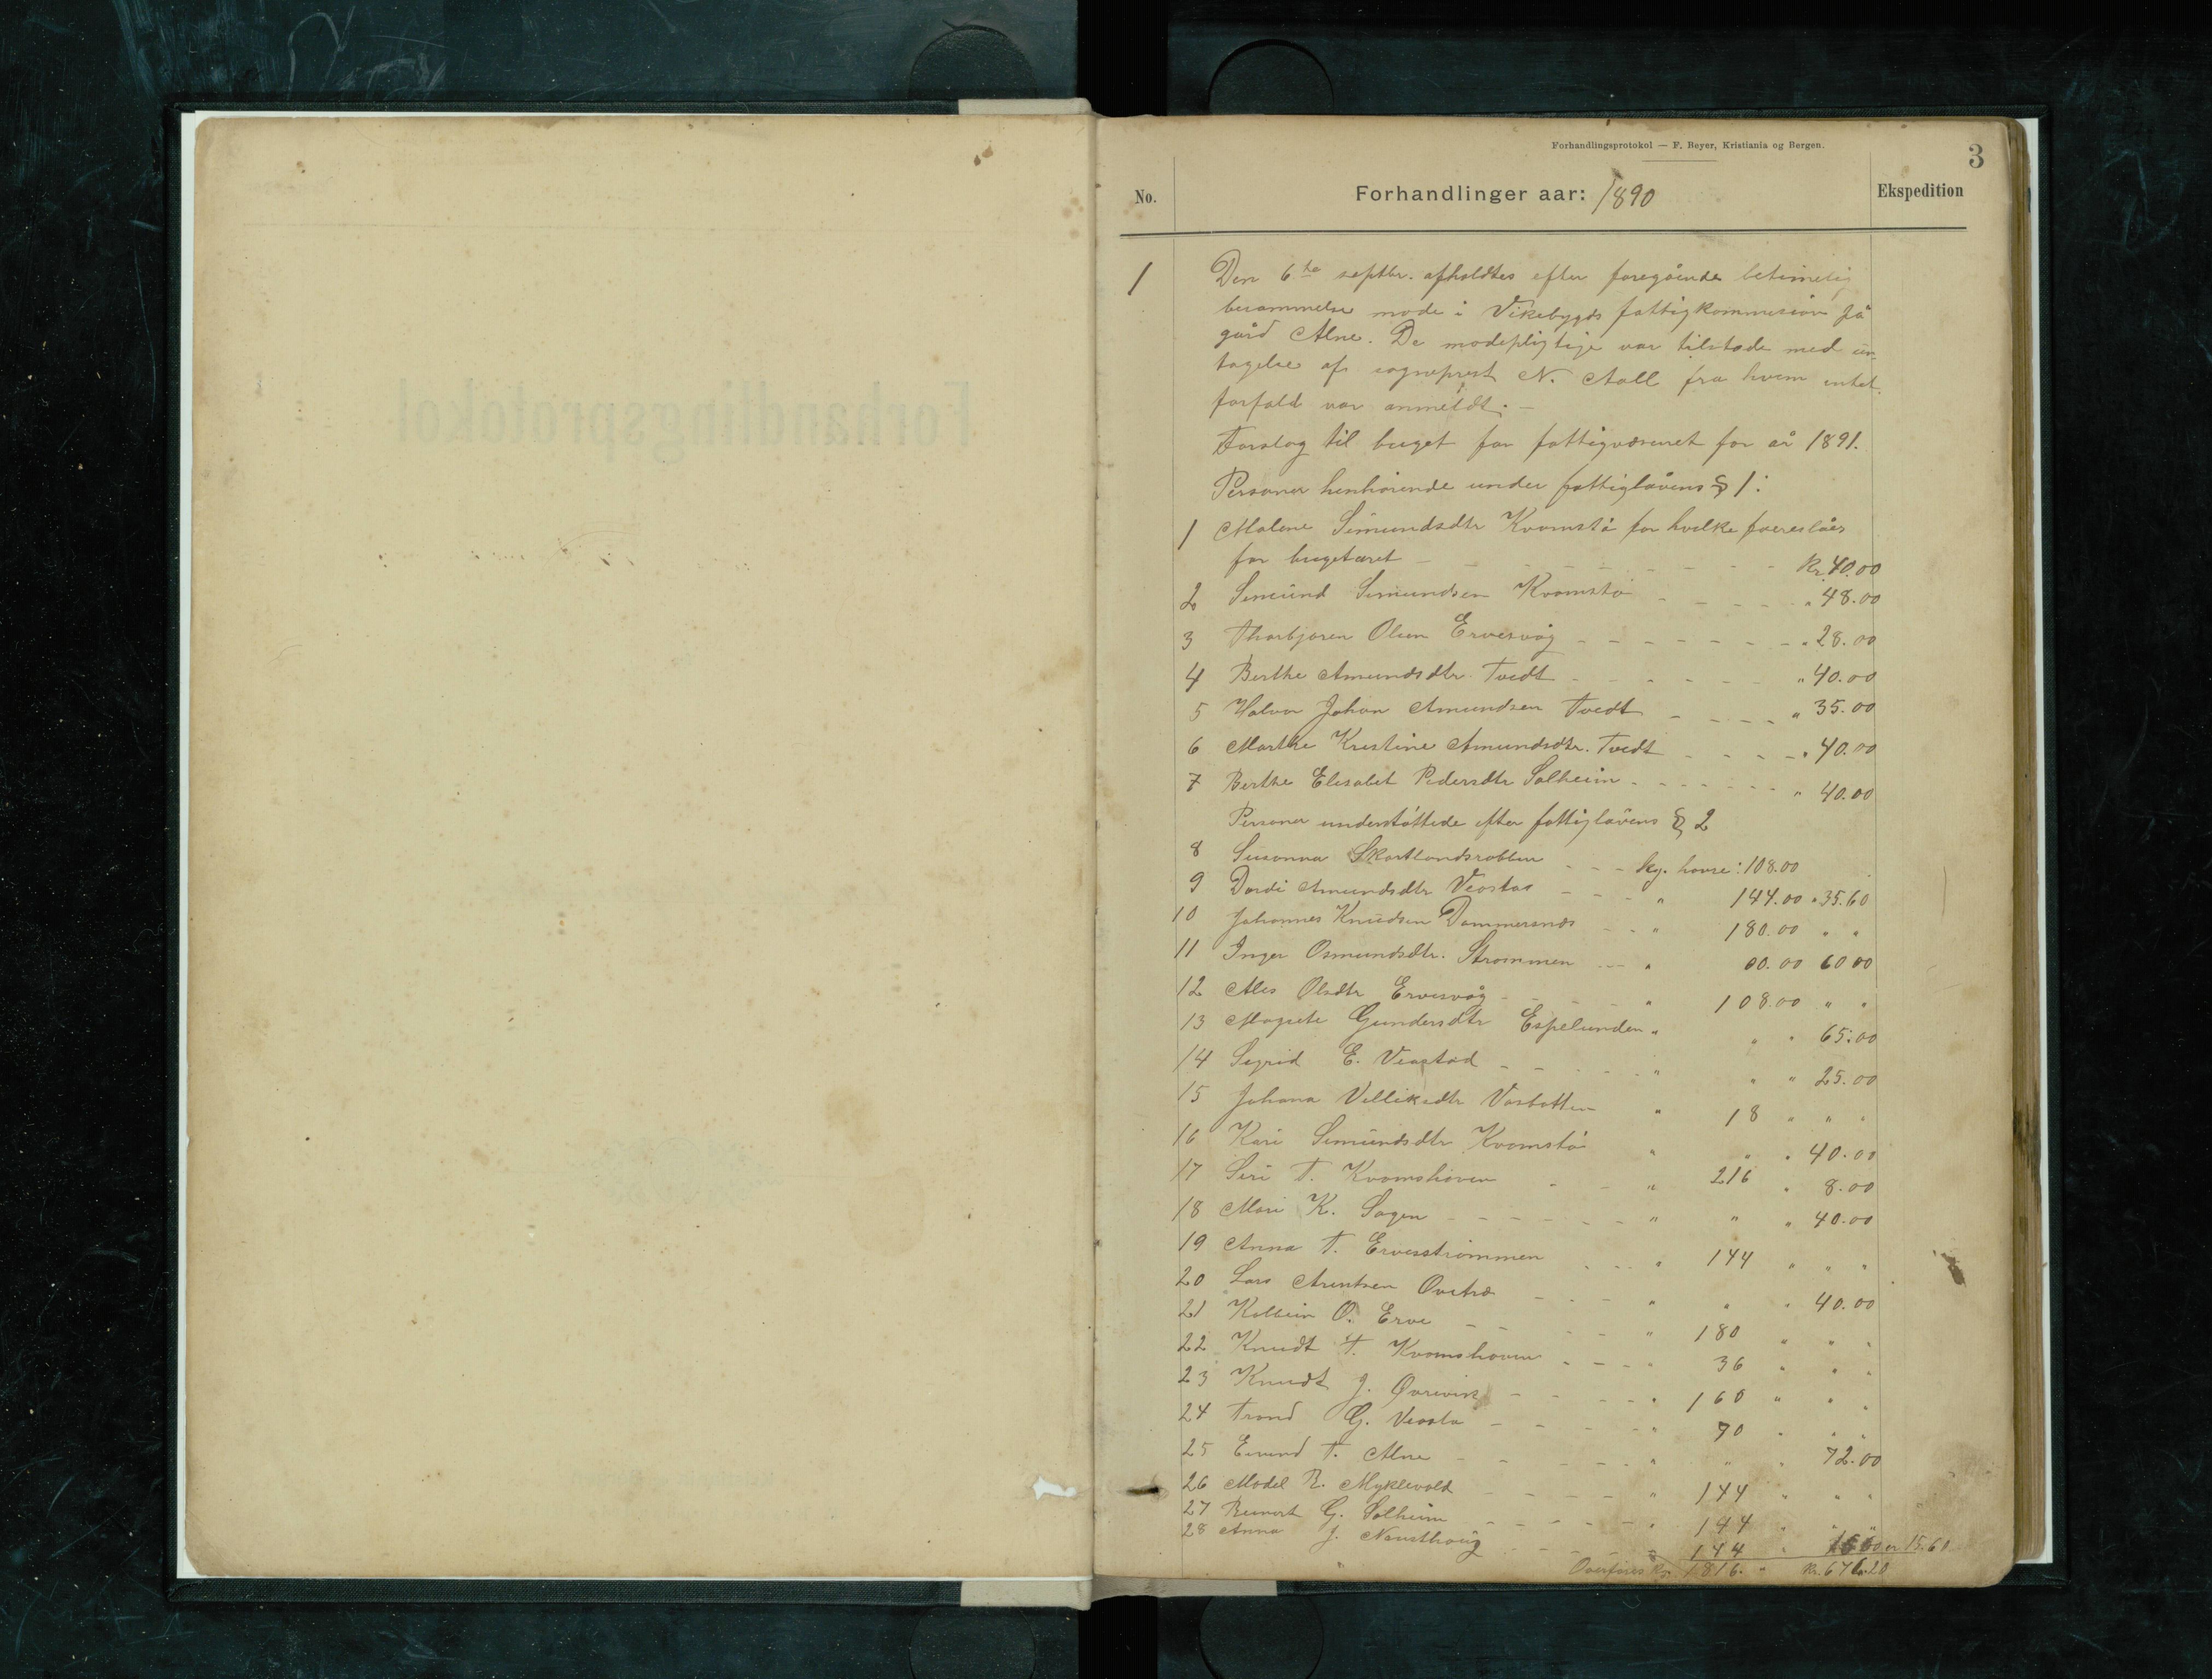 Forhandlingsprotokol — F. Beyer, Kristiania og Bergen.
3
No. Forhandlinger aar: 1890 Ekspedition
1 Den 6te septbr. afholdtes efter foregående betimelig
berammelse møde i Vikebygds fattigkommision på
gård Alne. De mødepligtige var tilstæde med un-
tagelse af sogneprest N. Aall fra hvem intet
forfald var anmeldt. —
Forslag til buget for fattigvæsenet for år 1891.
Personer henhörende under fattiglovens § 1:
1 Malene Simundsdtr Kvamstö for hvilke foreslåes
for bugetåret - - - - - - Kr. 40.00
2 Simund Simundsen Kvamstö - - - - " 48.00
3 Thorbjøren Olsen Ervesvåg - - - - - - " 28.00
4 Berthe Amundsdtr Tvedt - - - - - - " 40.00
5 Halvor Johan Amundsen Tvedt - - - - " 35.00
6 Marthe Kristine Amundsdtr. Tvedt - - - - " 40.00
7 Berthe Elisabet Pedersdtr Solheim - - - - - - " 40.00
Personer understöttede efter fattiglovens § 2
8 Susanna Skartlandsrabben - - - kg. havre: 108.00
9 Dordi Amundsdtr Veastad - - - " 144.00 " 35.60
10 Johannes Knudsen Dommersnes - - " 180.00 " "
11 Inger Osmundsdtr. Strømmen - - " 00.00 60 00
12 Ales Olsdtr Ervesvåg - - - - " 108.00 " "
13 Magrete Gundersdtr Espelunden " " " 65.00
14 Sigrid E. Veastad - - - - - " " " 25.00
15 Johana Villiksdtr Vastøtten " 18 " " "
16 Kari Simundsdtr Kvamstö " " " 40.00
17 Siri T. Kvamshoven - - " 216 " 8.00
18 Mari K. Sagen - - - - - - " " " 40.00
19 Anna T. Ervesströmmen - - - " 144 " " "
20 Lars Arentsen Øvetræ - - - " " " 40.00
21 Kolbein O. Erve - - - - " 180 " " "
22 Knudt T. Kvamshoven - - - - 36 " " "
23 Knudt J. Øvrevik - - - - " 160 " " "
24 Trond G. Veasta - - - - - " 70 " " "
25 Eivind T. Alne - - - - - " " " 72.00
26 Madel R. Myklevold - - - - " 144 " " "
27 G. Solheim - - - - - " 144 " " "
28 Anna J. Nausthoug - - - - - " 144 " 15.60
Overføres Kr. 1816. " Kr. 676.20